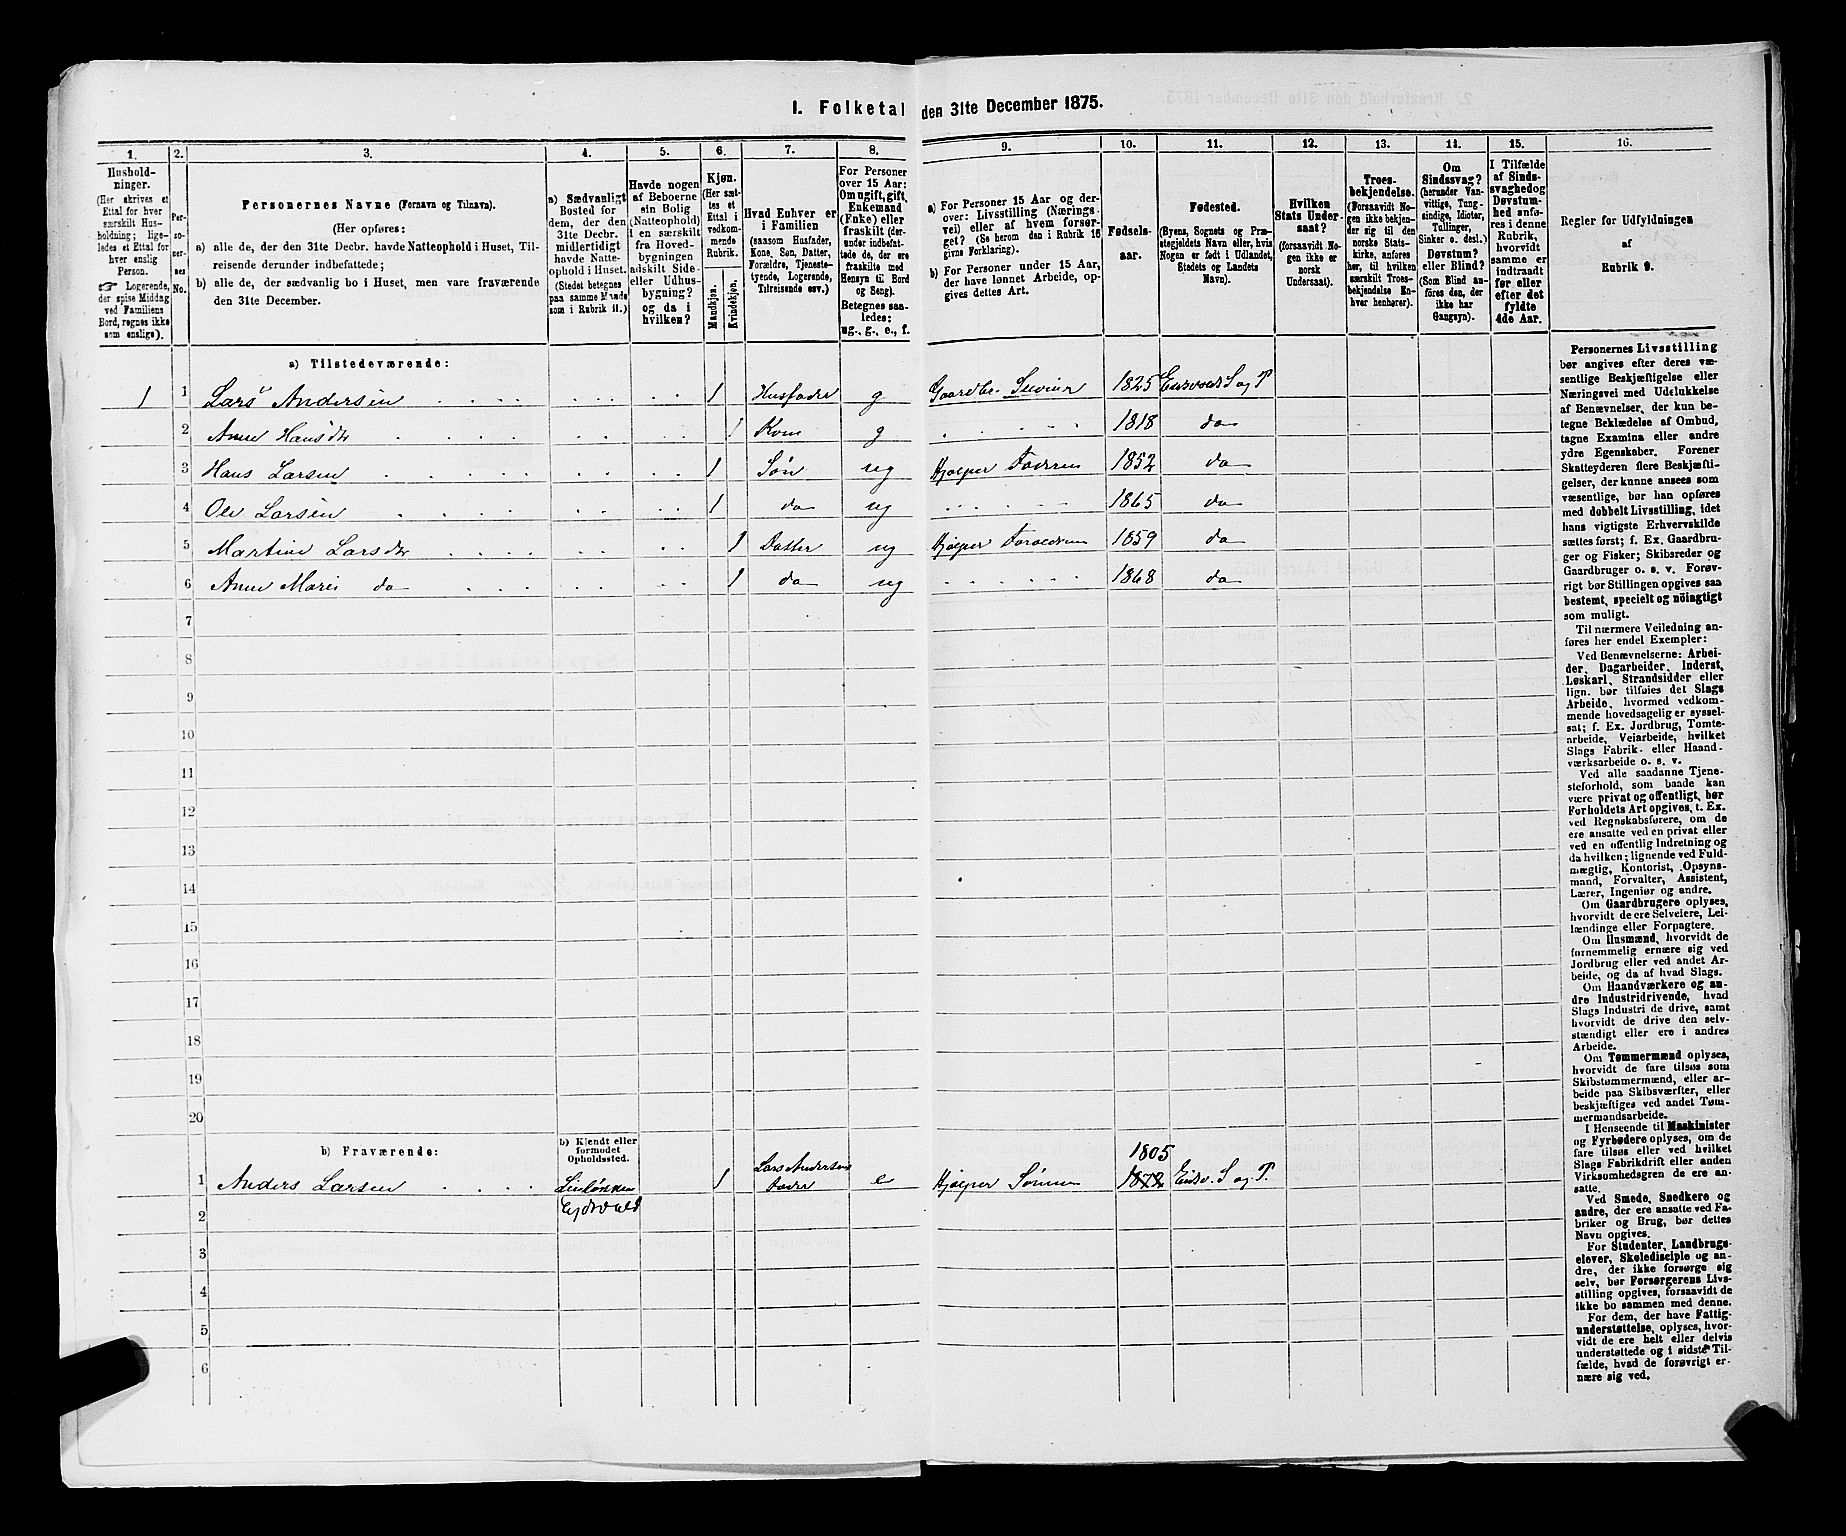 I. Folketal den 31te December 1875.
1.
Husholdninger.
(Her skrives et
Ettal for hver
særskilt Husholdning; ligeledes
et Ettal for
hver enslig
Person.
☞ Logerende,
der spise Middag
ved Familiens
Bord, regnes ikke
som enslige).
2.
Personernes
No.
3.
Personernes Navne (Fornavn og Tilnavn).
(Her opføres:
a) alle de, der den 31te Decbr. havde Natteophold i Huset, Tilreisende derunder indbefattede;
b) alle de, der sædvanlig bo i Huset, men vare fraværende
den 31te December.
4.
a) Sædvanligt
Bosted for
dem, der den
31te Decbr.
midlertidigt
havde Natteophold i Huset.
(Stedet betegnes
paa samme Maade
som i Rubrik 11.)
5.
Havde nogen
af Beboerne
sin Bolig
(Natteophold)
i en særskilt
fra Hovedbygningen
adskilt Side-
eller Udhusbygning?
og da i
hvilken?
6.
Kjøn.
(Her sættes et
Ettal i
vedkommende
Rubrik.
Mandkjøn.
Kvindekjøn.
7.
Hvad Enhver er
i Familien
(saasom Husfader,
Kone, Søn, Datter,
Forældre, Tjenestetyende, Logerende,
Tilreisende osv.)
8.
For Personer
over 15 Aar:
Om ugift, gift,
Enkemand
(Enke) eller
fraskilt (derunder indbefattede de, der ere
fraskilte med
Hensyn til Bord
og Seng).
Betegnes saaledes:
ug., g., e., f.
9.
a) For Personer 15 Aar og derover: Livsstilling (Næringsvei) eller af hvem forsørget? (Se herom den i Rubrik 16
givne Forklaring).
b) For Personer under 15 Aar,
der have lønnet Arbeide, opgives dettes Art.
10.
Fødselsaar.
11.
Fødested.
(Byens, Sognets og Præstegjeldets Navn eller, hvis
Nogen er født i Udlandet,
Stedets og Landets
Navn).
12.
Hvilken
Stats Undersaat?
(forsaavidt Nogen ikke er
norsk
Undersaat).
13.
Troesbekjendelse.
(Forsaavidt Nogen ikke bekjender sig til den
norske Statskirke, anføres
her, til hvilken
særskilt Troesbekjendelse Enhver henhører).
14.
Om
Sindssvag?
(herunder Vanvittige, Tungsindige, Idioter,
Sinker o. desl.)
Døvstum?
eller Blind?
(Som Blind anføres den, der
ikke har
Gangsyn).
15.
I Tilfælde
af Sindssvaghed og
Døvstumhed anføres i denne
Rubrik,
hvorvidt
samme er
indtraadt
før eller
efter det
fyldte
4de Aar.
16.
Regler for Udfyldningen
af
Rubrik 9.
a) Tilstedeværende:
1 1 Lars Andersen 1 Husfader g Gaardbr. Selveier 1825 Eidsvold S og P
2 Anne Hansdtr 1 Kone g 1818 do
3 Hans Larsen 1 Søn ug Hjælper Faderen 1852 do
4 Ole Larsen 1 do ug 1865 do
5 Martine Larsdtr 1 Datter ug Hjælper Forældrene 1859 do
6 Anne Marie do 1 do ug 1868 do
7
8
9
10
11
12
13
14
15
16
17
18
19
20
b) Fraværende:
b) Kjendt eller
formodet
Opholdssted.
1805
1 Anders Larsen Eydsvold 1 Lars Andersens Fader e Hjælper Sønnen 1872 Eidsv. S og P.
2
3
4
5
6
Personernes Livsstilling
bør angives efter deres væsentlige Beskjæftigelse eller
Næringsvei med Udelukkelse
af Benævnelser, der kun betegne Beklædelse af Ombud,
tagne Examina eller andre
ydre Egenskaber. Forener
Skatteyderen flere Beskjæftigelser, der kunne ansees som
væsentlige, bør han opføres
med dobbelt Livsstilling, idet
hans vigtigste Erhvervskilde
sættes først; f. Ex. Gaardbruger og Fisker; Skibsreder og
Gaardbruger o. s. v. Forøvrigt bør Stillingen opgives saa
bestemt, specielt og nöiagtigt
som muligt.
Til nærmere Veiledning anføres her endel Exempler:
Ved Benævnelserne: Arbeider, Dagarbeider, Inderst,
Løskarl, Strandsidder eller
lign. bør tilføies det Slags
Arbeide, hvormed vedkommende hovedsagelig er sysselsat; f. Ex. Jordbrug, Tomtearbeide, Veiarbeide, hvilket
Slags Fabrik- eller Haandværksarbeide o. s. v.
Ved alle saadanne Tjenesteforhold, som baade kan
være privat og offentligt, bør
Forholdets Art opgives, t. Ex.
ved Regnskabsførere, om de
ere ansatte ved en privat eller
ved en offentlig Indretning og
da hvilken; lignende ved Fuldmægtig, Kontorist, Opsynsmand, Forvalter, Assistent,
Lærer, Ingeniør og andre.
Om Gaardbrugere oplyses,
hvorvidt de ere Selveiere, Leilændinge eller Forpagtere.
Om Husmænd, hvorvidt de
fornemmelig ernære sig ved
Jordbrug eller ved andet Arbeide, og da af hvad Slags.
Om Haandværkere og andre Industridrivende, hvad
Slags Industri de drive, samt
hvorvidt de drive den selvstændigt eller ere i andres
Arbeide.
Om Tømmermænd oplyses,
hvorvidt de fare tilsøs som
Skibstømmermænd, eller arbeide paa Skibsværfter, eller
beskjæftiges ved andet Tømmermandsarbeide.
I Henseende til Maskinister
og Fyrbødere oplyses, om de
fare tilsøs eller ved hvilket
Slags Fabrikdrift eller anden
Virksomhedsgren de ere ansatte.
Ved Smede, Snedkere og
andre, der ere ansatte ved Fabriker og Brug, bør dettes
Navn opgives.
For Studenter, Landbrugselever, Skoledisciple og andre, der ikke forsørge sig
selv, bør Forsørgerens Livsstilling opgives, forsaavidt de
ikke bo sammen med denne.
For dem, der have Fattigunderstøttelse, oplyses, hvorvidt de ere helt eller delvis
understøttede og i sidste Tilfælde, hvad de forøvrigt ernære sig ved.